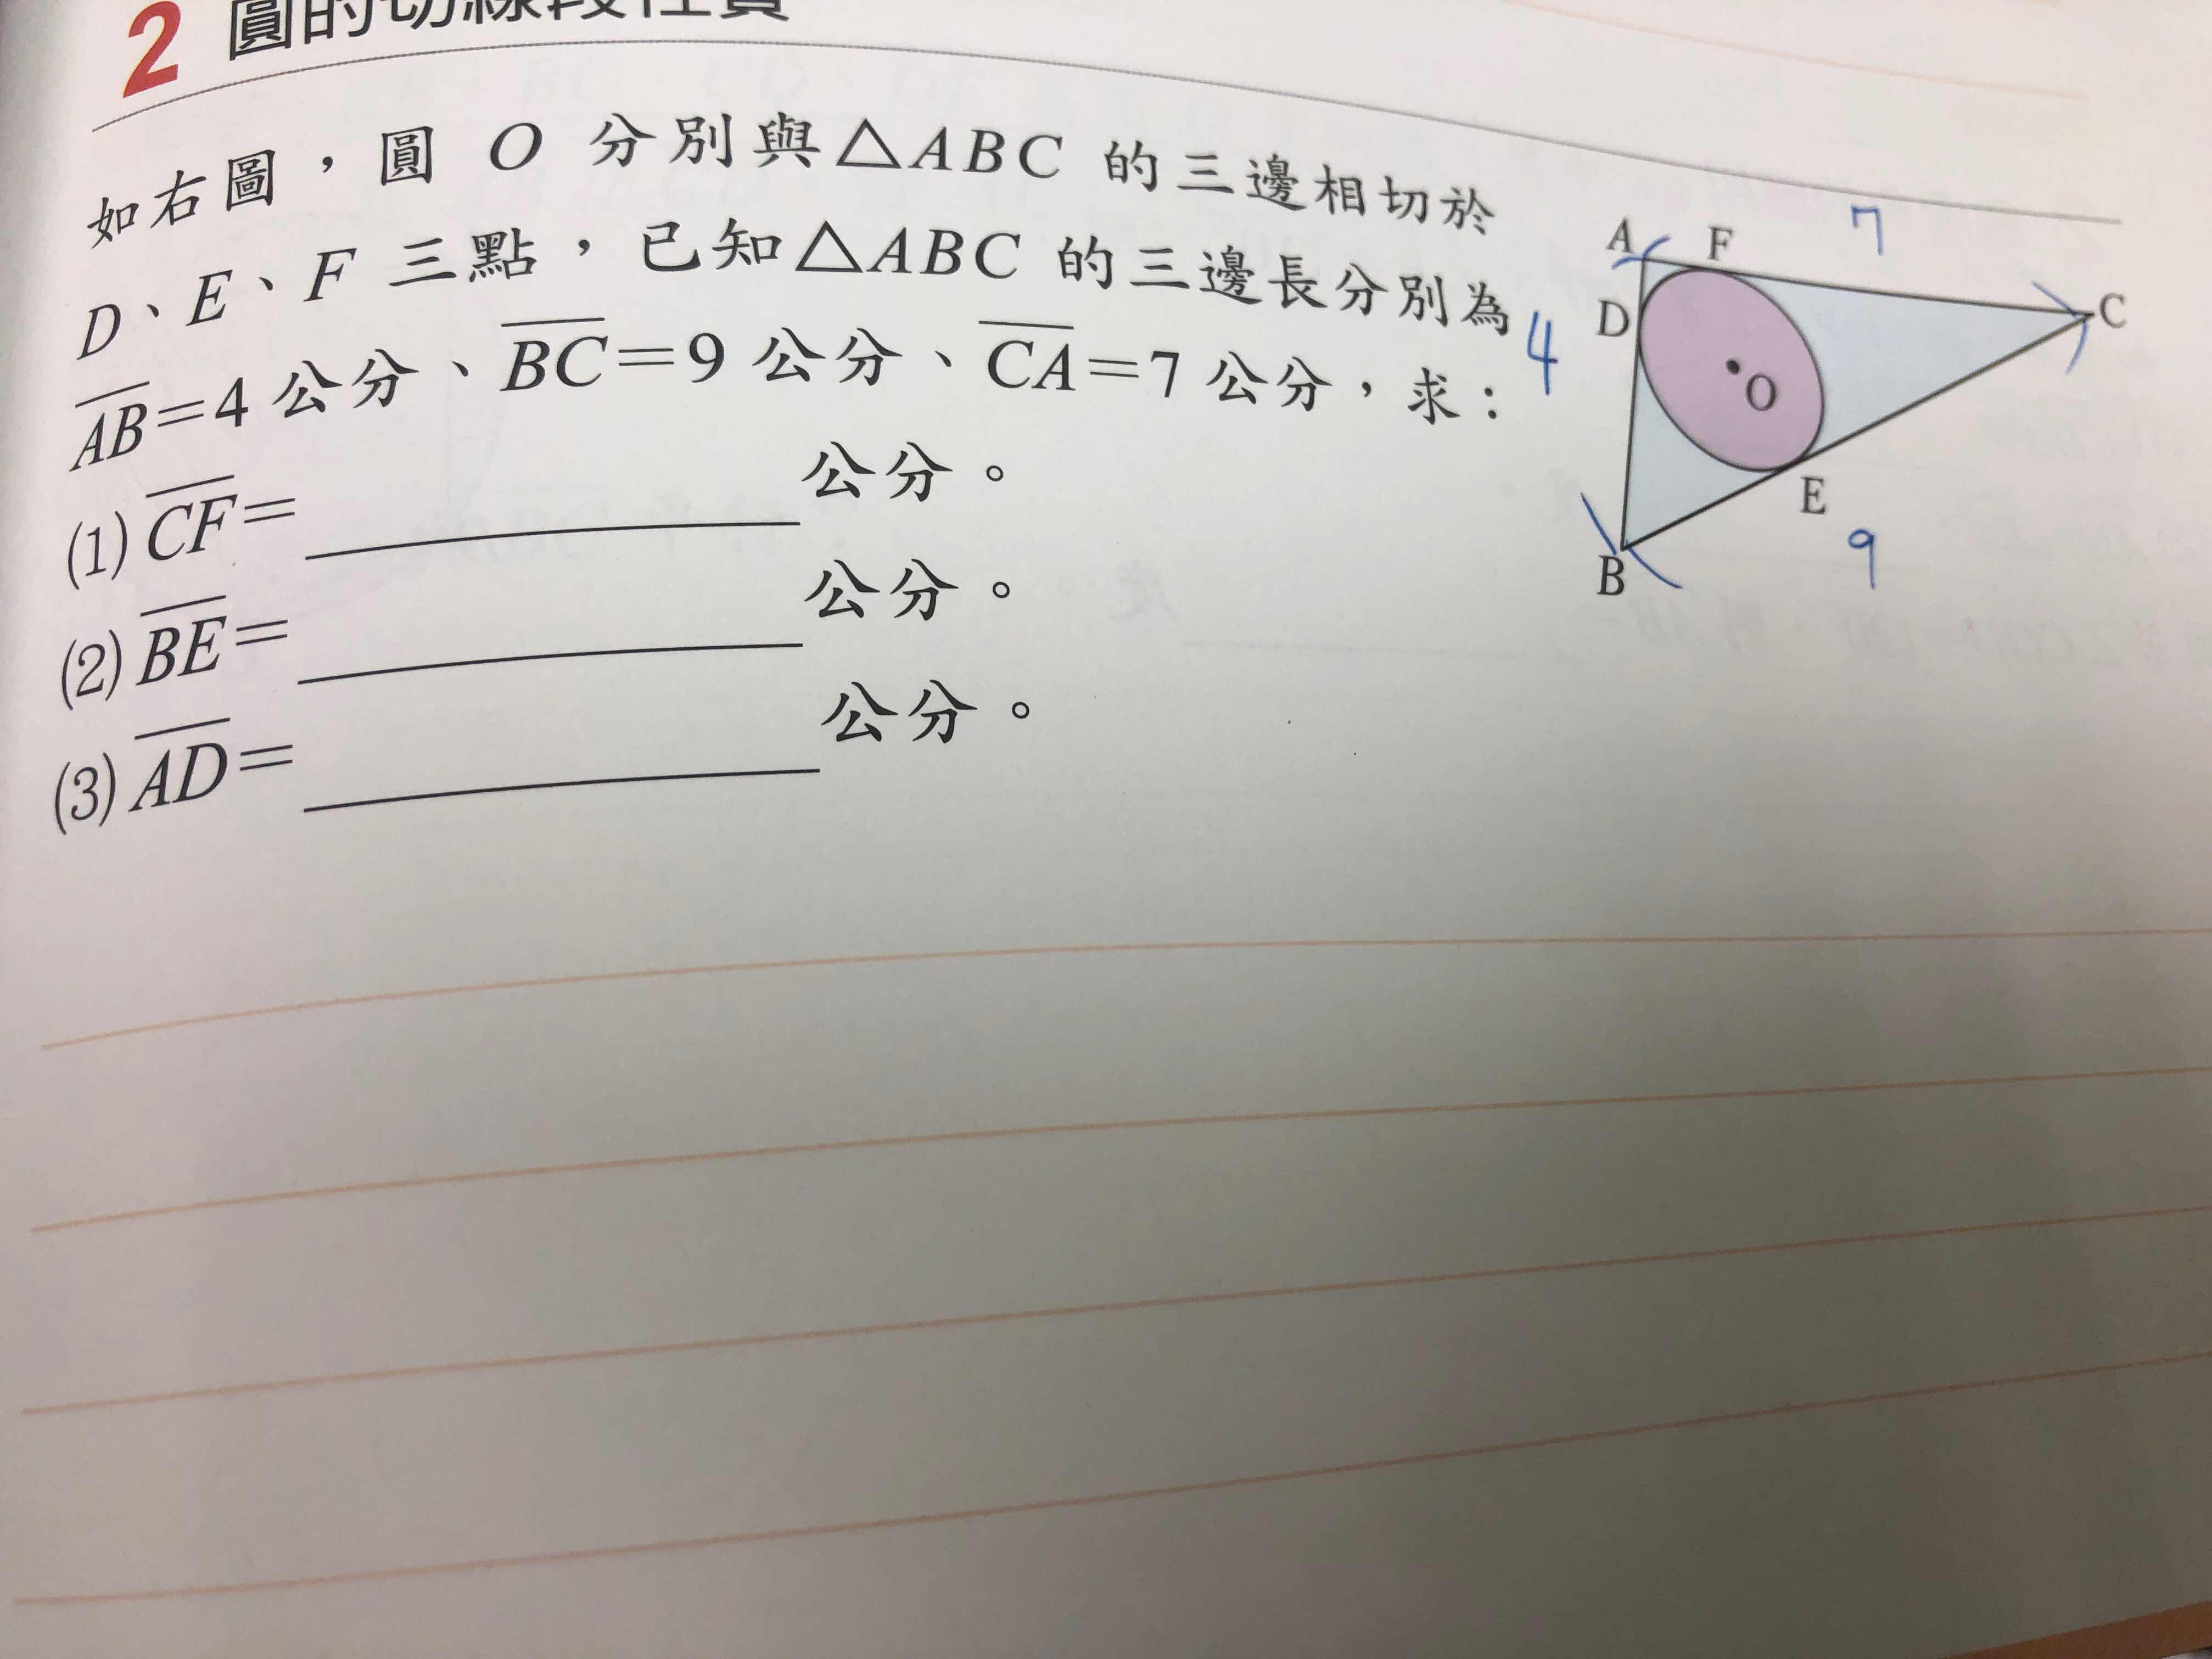 2 圓的切線段性質
如右圖，圓 O 分別與△ABC 的三邊相切於
D、E、F 三點，已知△ABC 的三邊長分別為
AB=4 公分、BC=9 公分、CA=7 公分，求：
(1) CF= 公分。
(2) BE= 公分。
(3) AD= 公分。
A F 7
D C
4
O
E
B 9